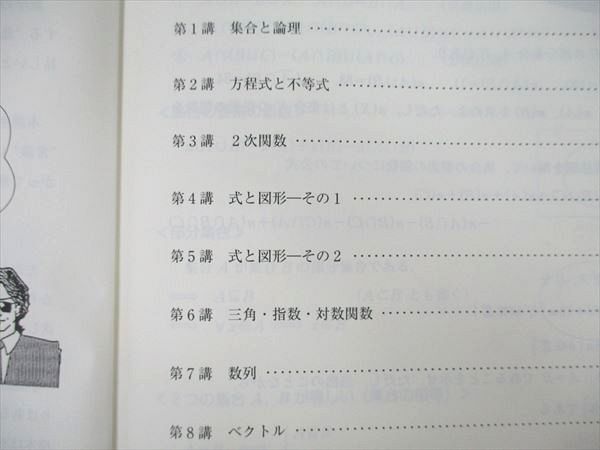 第1講 集合と論理 ‥‥‥‥‥‥‥‥
第2講 方程式と不等式 ‥‥‥‥‥‥‥
第3講 2次関数 ‥‥‥‥‥‥‥‥‥
第4講 式と図形―その1 ‥‥‥‥‥‥
第5講 式と図形―その2 ‥‥‥‥‥‥
第6講 三角・指数・対数関数 ‥‥‥‥‥
第7講 数列 ‥‥‥‥‥‥‥‥‥‥
第8講 ベクトル ‥‥‥‥‥‥‥‥‥